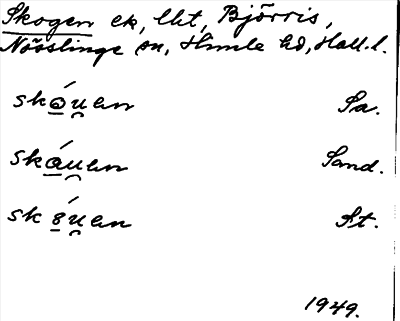 Skogen ek, lht, Björris,
Nösslinge sn, Himle hd, Hall. l.
skǝ́u̯en Sa.
skáu̯en Sand.
sk8́u̯en St.
1949.